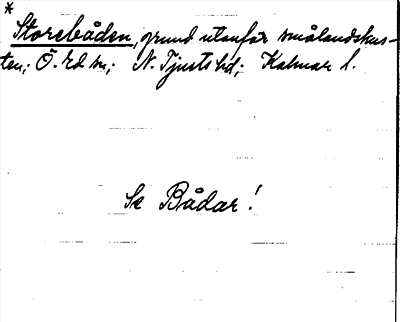 *
Storebåden, grund utanför smålandskus-
ten; Ö. Ed sn; N. Tjusts hd; Kalmar l.
Se Bådar!